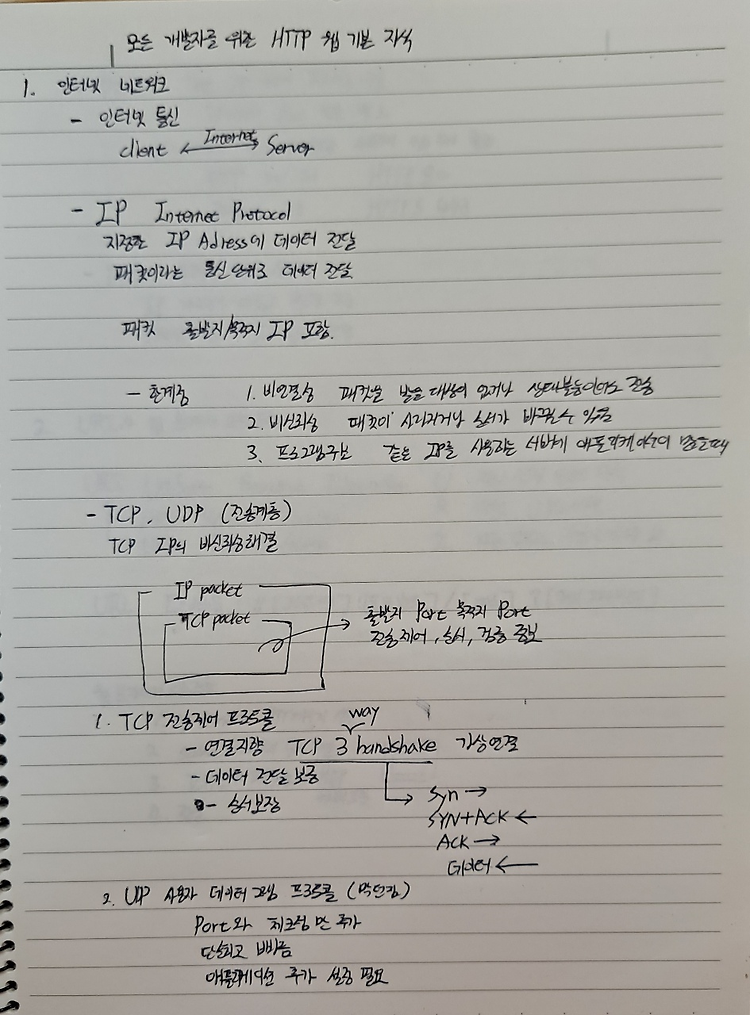 모든 개발자를 위한 HTTP 웹 기본 지식
1. 인터넷 네트워크
- 인터넷 통신
client Internet Server
- IP Internet Protocol
지정한 IP Adress에 데이터 전달
패킷이라는 통신 단위로 데이터 전달
패킷 출발지/목적지 IP 포함.
- 한계점 1. 비연결성 패킷을 받을 대상이 없거나 상태불능이어도 전송
2. 비신뢰성 패킷이 사라지거나 순서가 바뀔 수 있음
3. 프로그램구분 같은 IP를 사용하는 서버에 애플리케이션이 많을 때
- TCP, UDP (전송계층)
TCP IP의 비신뢰성 해결
IP packet
TCP packet
출발지 Port 목적지 Port
전송제어, 순서, 검증 정보
1. TCP 전송제어 프로토콜
way
- 연결지향 TCP 3 handshake 가상연결
- 데이터 전달 보증
- 순서보장
Syn →
SYN+ACK ←
ACK →
데이터 ←
2. UDP 사용자 데이터그램 프로토콜
Port와 체크섬만 추가
단순하고 빠름
애플리케이션 추가 필요